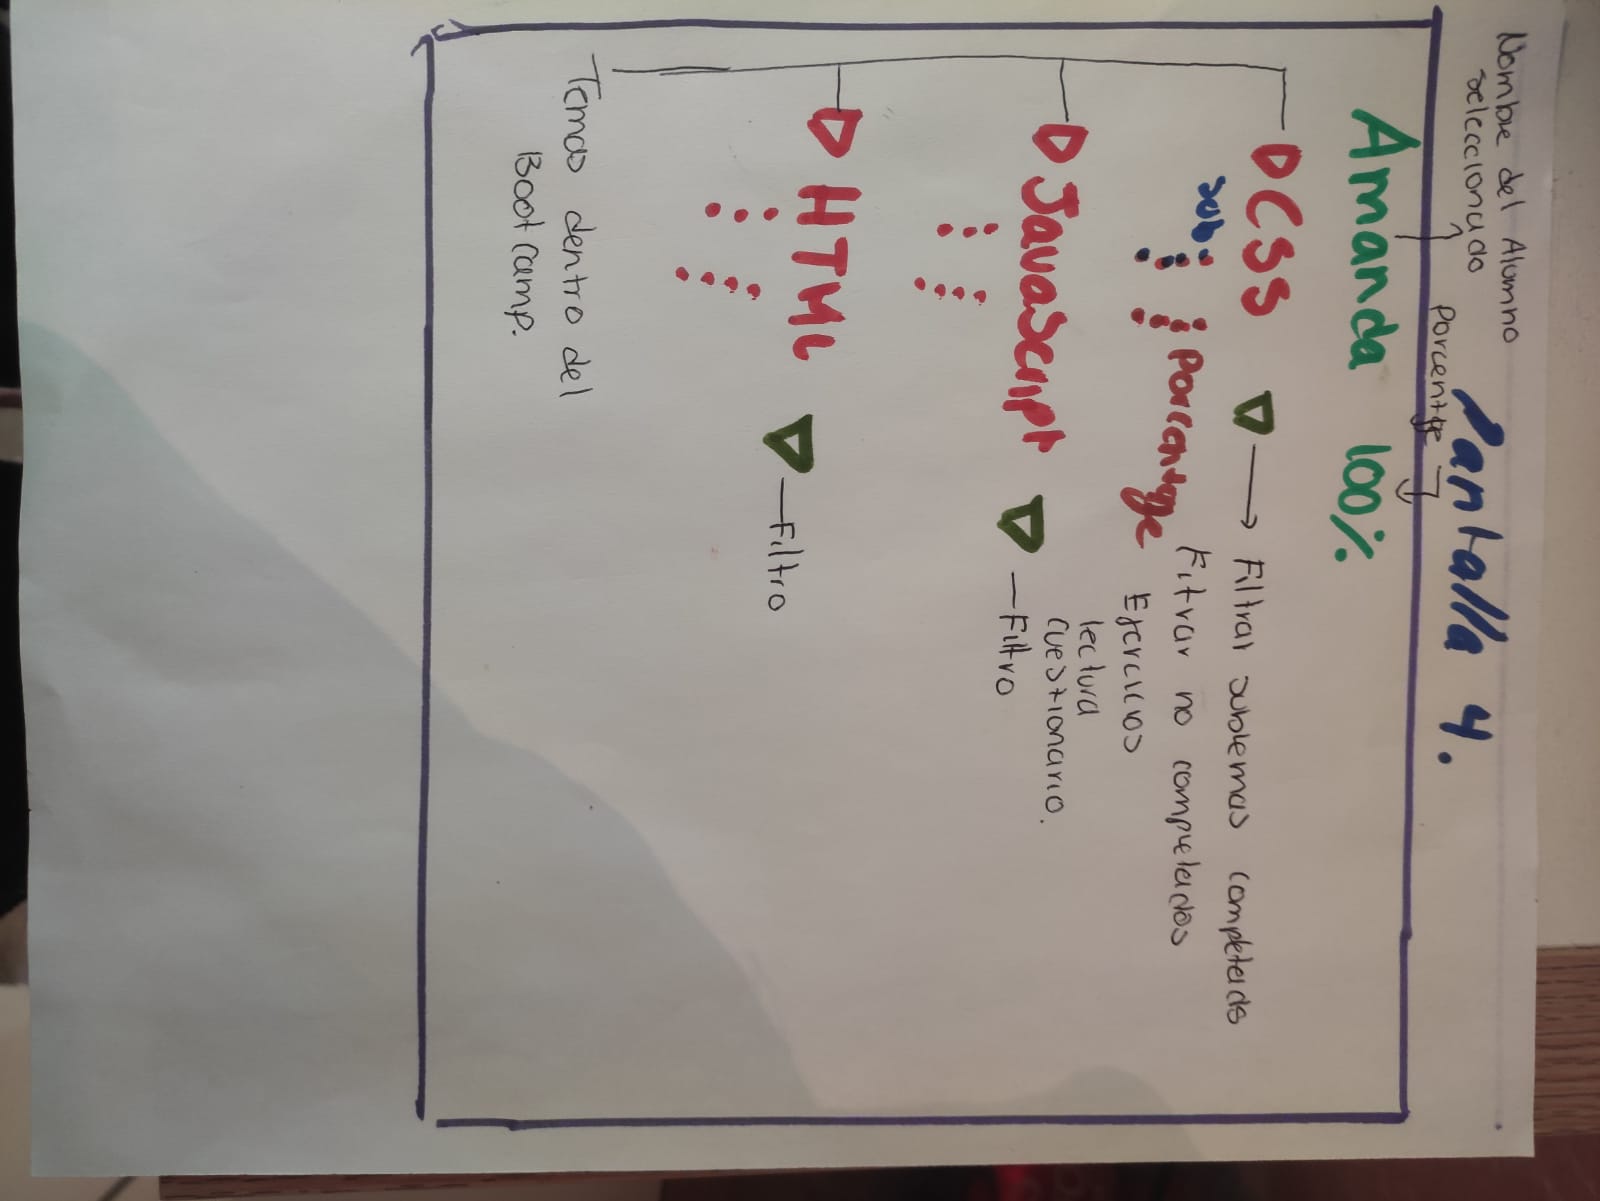 Nombre del Alumno
seleccionado
Pantalla 4.
Porcentje
Amanda 100%
CSS
Filtrar subtemas completads
sub
Porcentage
Fitrar no completados
Ejercicios
lectura
cuestionario.
JavaScript
—Filtro
HTML
—Filtro
Temas dentro del
Boot Camp.